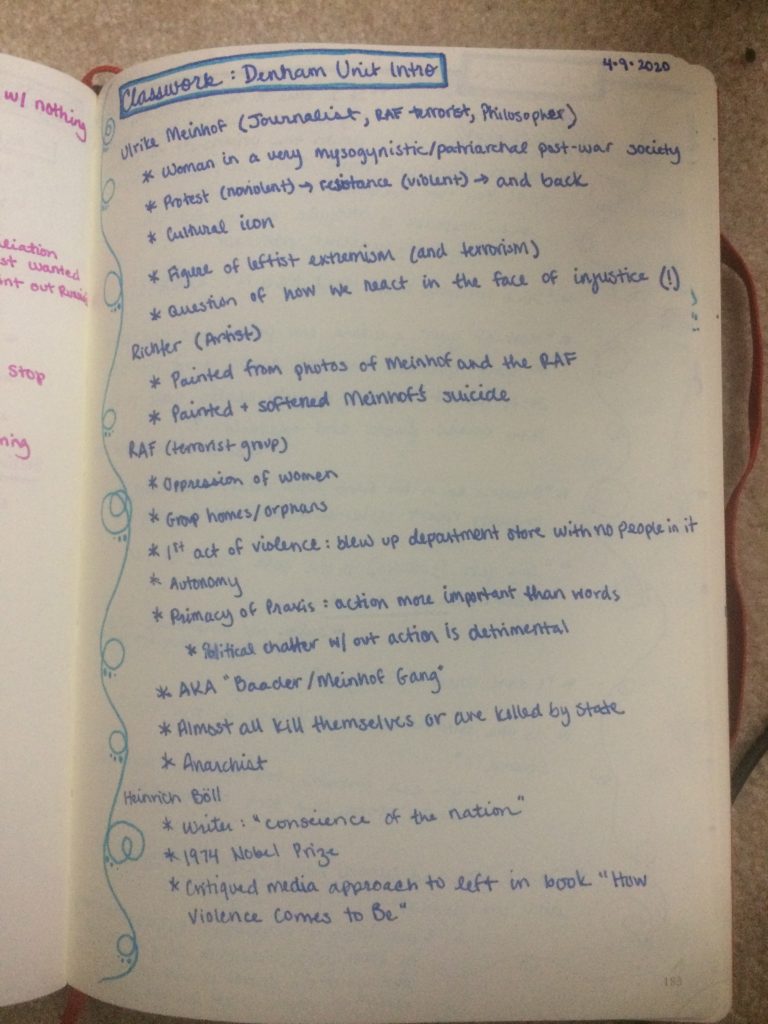 w/ nothing
st wanted
stop
ning
Classwork : Denham Unit Intro
4.9.2020
Ulrike Meinhof (Journalist, RAF terrorist, Philosopher)
* Woman in a very mysogynistic/patriarchal post-war society
* Protest (nonviolent) → resistance (violent) → and back
* Cultural icon
* Figure of leftist extremism (and terrorism)
* Question of how we react in the face of injustice (!)
Richter (Artist)
* Painted from photos of Meinhof and the RAF
* Painted + softened Meinhof's suicide
RAF (terrorist group)
* Oppression of women
* Group homes/orphans
* 1st act of violence : blew up department store with no people in it
* Autonomy
* Primacy of Praxis : action more important than words
* Political chatter w/out action is detrimental
* AKA "Baader/Meinhof Gang"
* Almost all kill themselves or are killed by state
* Anarchist
Heinrich Böll
* Writer : "conscience of the nation"
* 1974 Nobel Prize
* Critiqued media approach to left in book "How
Violence Comes to Be"
183